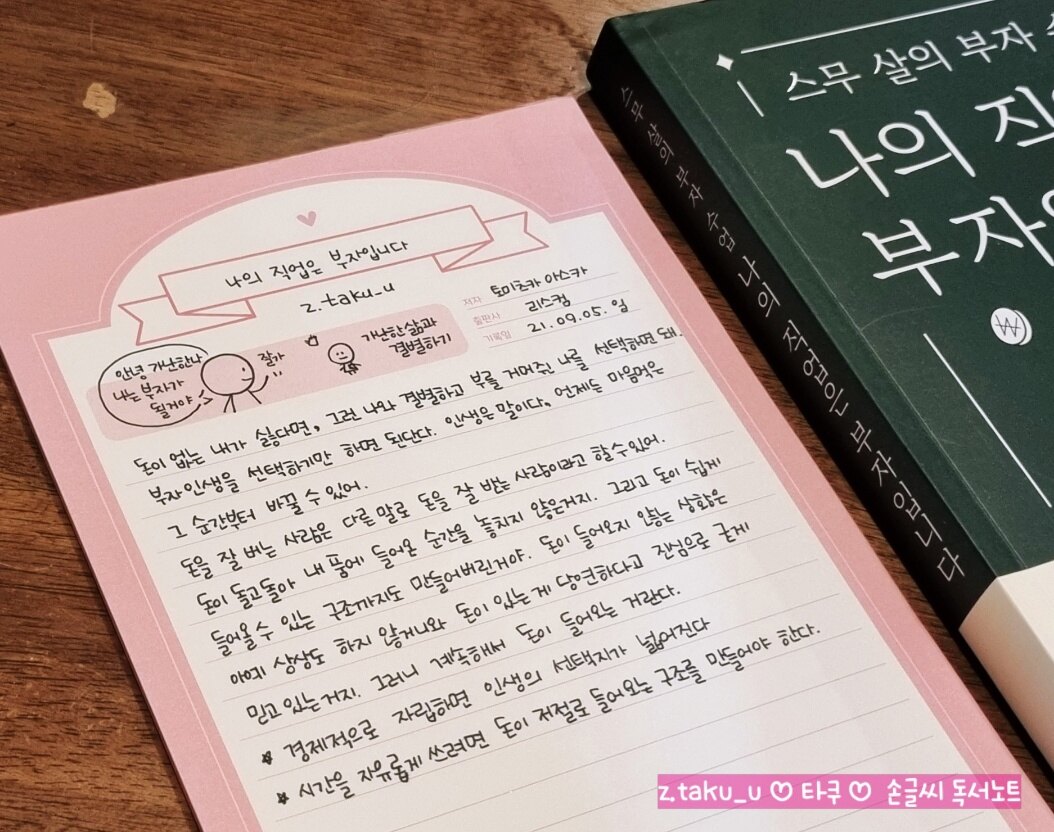 나의 직업은 부자입니다
z.taku_u
저자 토미츠카 아스카
출판사 리스컴
기록일 21.09.05. 일
안녕 가난한나
나는 부자가
될거야
잘가
가난한 삶과
결별하기
돈이 없는 내가 싫다면, 그런 나와 결별하고 부를 거머쥔 나를 선택하면 돼.
부자 인생을 선택하기만 하면 된단다. 인생은 말이다, 언제든 마음먹은
그 순간부터 바꿀 수 있어.
돈을 잘 버는 사람은 다른 말로 돈을 잘 받는 사람이라고 할 수 있어.
돈이 돌고돌아 내 품에 들어온 순간을 놓치지 않은거지. 그리고 돈이 쉽게
들어올 수 있는 구조까지도 만들어버린거야. 돈이 들어오지 않는 상황은
아예 상상도 하지 않거니와 돈이 있는게 당연하다고 진심으로 굳게
믿고 있는 거지. 그러니 계속해서 돈이 들어오는 거란다.
★ 경제적으로 자립하면 인생의 선택지가 넓어진다
★ 시간을 자유롭게 쓰려면 돈이 저절로 들어오는 구조를 만들어야 한다.
스무 살의 부자 수업 나의 직업은 부자입니다
스무 살의 부자
나의 직
부자
z.taku_u ♡ 타쿠 ♡ 손글씨 독서노트